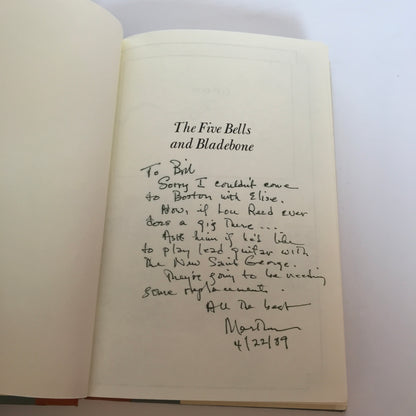 The Five Bells
and Bladebone
To Bill
Sorry I couldn't come
to Boston with Elise.
Now, if Lou Reed ever
does a gig there...
Ask him if he'd like
to play lead guitar with
The New Saint George.
They're going to be needing
some replacements.
All the best
Martha
4/22/89